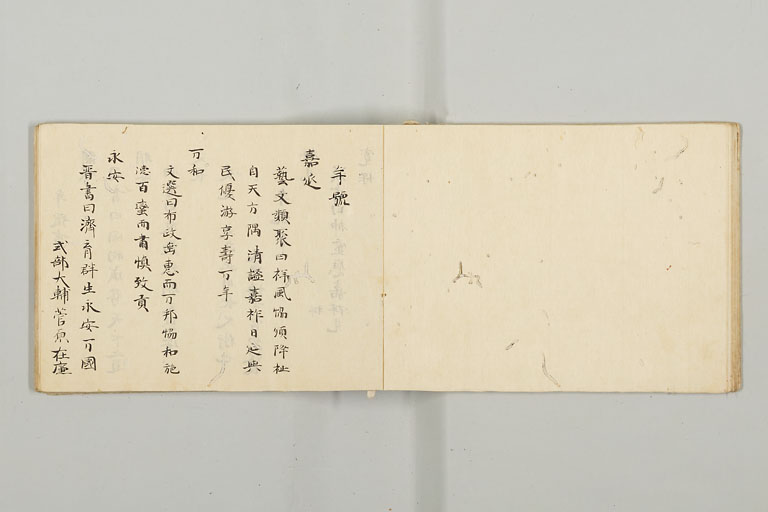 年號
嘉延
藝文類聚曰祥風協順降祉
自天方隅清謐嘉祚日延與
民優游享壽万年
万和
文選曰布政垂惠而万邦協和施
德百蠻而肅慎致貢
永安
晋書曰濟育群生永安万國
式部大輔菅原在